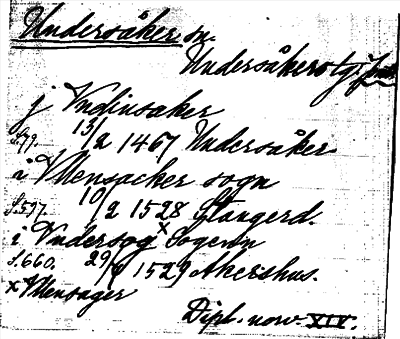 Undersåker sn.
Undersåkers tg. Jmtl.
j Vndinsaker
S.79. 13/2 1467 Undersåker
i Vllensacker sogn
S.537. 10/2 1528 Stangerd.
i Vndersog x Sogenn
S.660. 29/9 1529 Akershus.
x Vllensager
Dipl. norv. XIV.